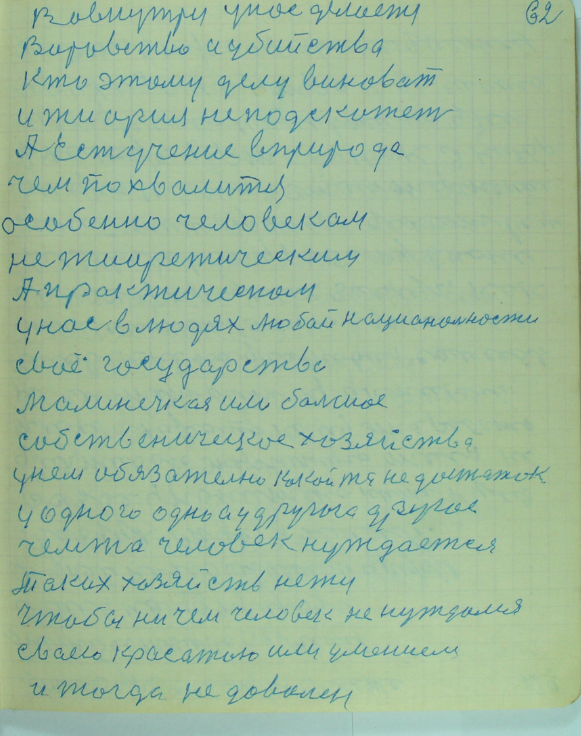 62
Вовнутри унос делоеті
Воровство и убийства
Кто этому делу виноват
и тиория неподскожет
А Естучение в природе
чем похвалится
особенно человеком
не тиоретическим
А практическом
у нос в людях любой национолности
своё государство
малинечкоя или болшое
собственическое хозяйства
унем обязателно какойта не достаток
у одного одно а у другога другое
чемта человек нуждается
таких хозяйств нету
чтобы ни чем человек не нуждолся
сваею красатою или умением
и тогда не доволен